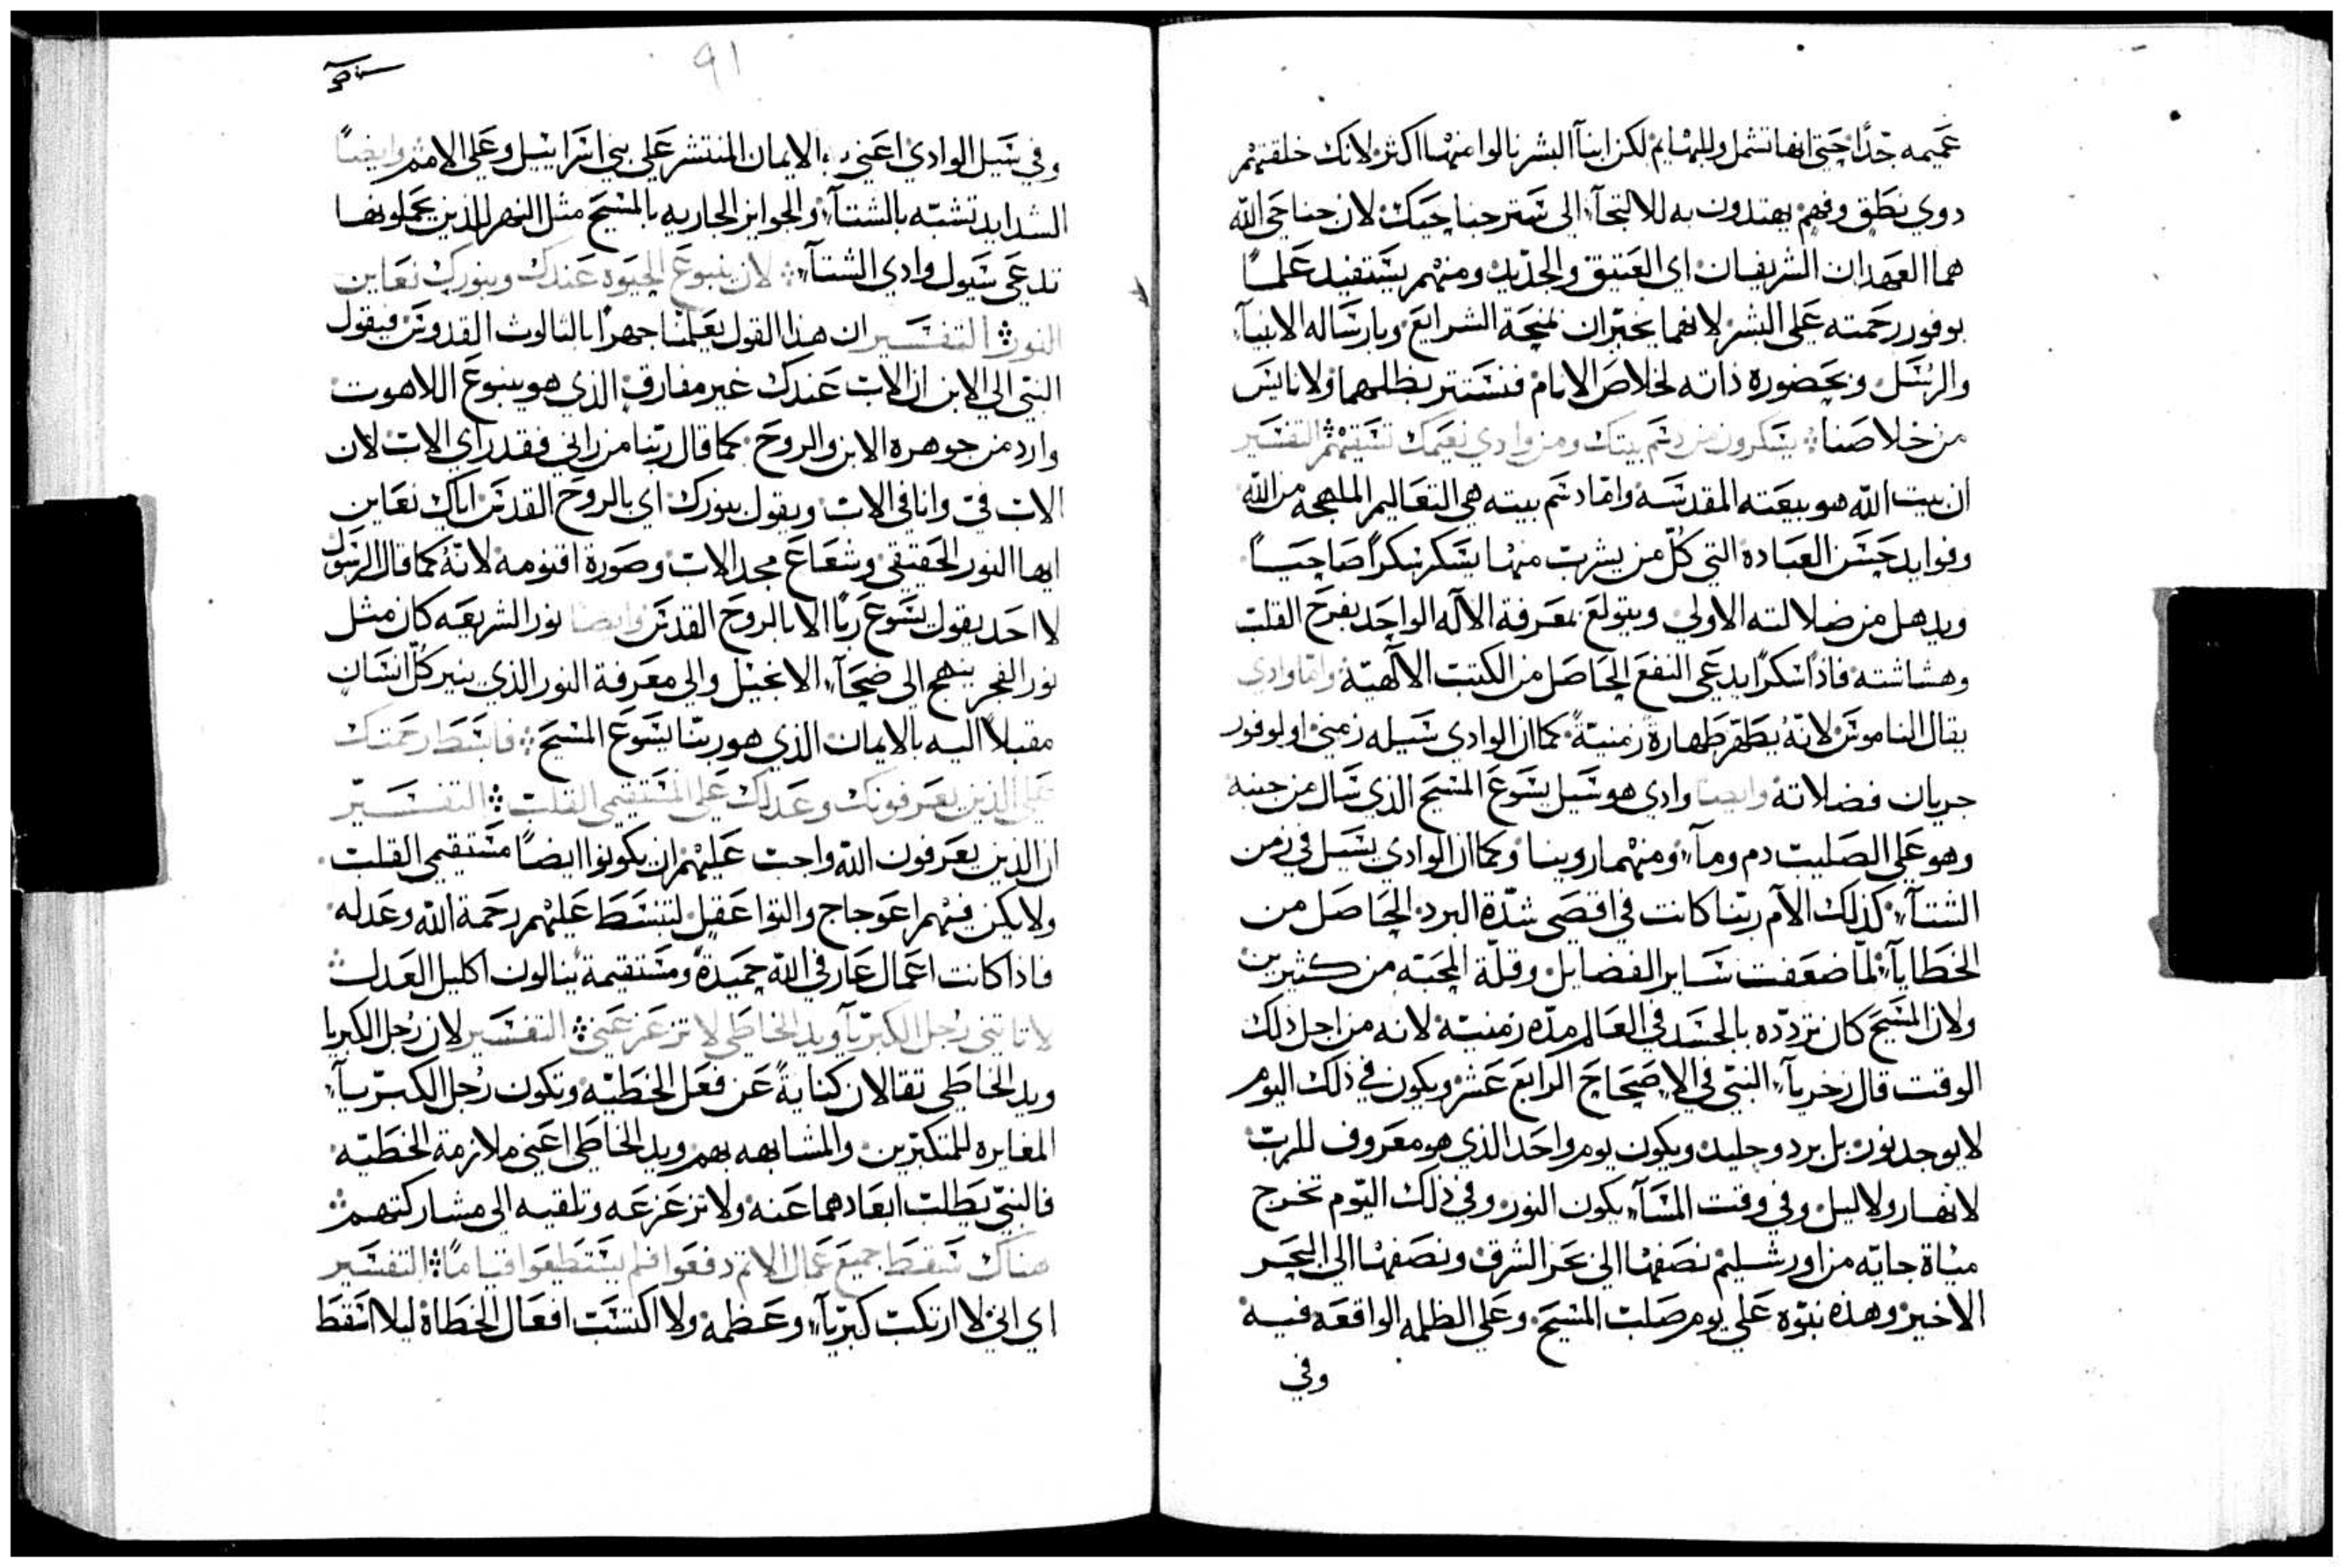 عميمه جدّا حتي انها تشمل وللبهايم لكن ابنآ البشر نالوا منها اكثر لانك خلقتهم
دوي نطق وفهم يهتدون به للالتجآء الى ستر جناحيك لان جناحي الله
هما العهدان الشريفان اي العتيق والجديد ومنهم يستفيد علماً
بوفور رحمته على البشر لانهما يخبران بمنحة الشرايع وبارساله الانبيآء
والرسل وبحضوره ذاته لخلاص الانام فنستتر بظلهما ولا نايس
من خلاصنا يسكرون من دسم بيتك ومن وادي نعيمك تسقيهم التفسير
ان بيت الله هو بيعته المقدسه وامّا دسم بيته هي التعاليم الملهجه من الله
وفوايد حسن العبادة التي كلّ من يشرب منها يسكر سكراً صاحياً
ويدهل من ضلالته الاولي ويتولع بمعرفة الآله الواحد بفرح القلب
وهشاشته فاذاً سكراً يدعى النفع الحاصل من الكتب الآلهيّة وامّا وادي
يقال الناموس لانّهُ يطهّر طهارةً زمنيّةً كما ان الوادي سيله زمني او لوفور
جريان فضلاته وايضا وادي هو سيل يسوع المسيح الذي سال من جنبه
وهو على الصليب دم ومآء ومنهما روينا وكما ان الوادي يسيل في زمن
الشتآء كذلك الآم ربّنا كانت في اقصى شدّة البرد الحاصل من
الخطايآء لمّا ضعفت ساير الفضايل وقلّة المحبّه من كثيرين
ولان المسيح كان تردّده بالجسد في العالم مدّه زمنيّة لانه من اجل ذلك
الوقت قال زخريآء النبيّ في الاصحاح الرابع عشر ويكون في ذلك اليوم
لا يوجد نور بل برد وجليد ويكون يوم واحد الذي هو معروف للرب
لا نهار ولا ليل وفي وقت المسآء يكون النور وفي ذلك اليوم تخرج
مياة حايّه من اورشليم نصفها الى بحر الشرق ونصفها الى البحر
الاخير وهذه نبوّه على يوم صلب المسيح وعلى الظلمه الواقعه فيه
وفي
91
وفي سيل الوادي اعني الايمان المنتشر على بني اسراييل وعلى الامم وايضاً
الشدايد تشبّه بالشتآء والجوايز الجاريه بالمسيح مثل النهر للذين يحملونها
تدعى سيول وادي الشتآء لان ينبوع الحيوه عندك وبنورك نعاين
النور التفسير ان هذا القول يعلمنا جهراً بالثالوث القدوس فيقول
النبي الى الابن ان الاب عندك غير مفارق الذي هو ينبوع اللاهوت
وارد من جوهره الابن والروح كما قال ربّنا من راني فقد راي الاب لان
الاب فيّ وانا في الاب ويقول بنورك اي بالروح القدس اياك نعاين
ايها النور الحقيقي وشعاع مجد الاب وصورة اقنومه لانّهُ كما قال الرسول
لا احد يقول يسوع ربّاً الا بالروح القدس وايضا نور الشريعه كان مثل
نور الفجر ينهج الى ضحآء الانجيل والي معرفة النور الذي ينير كلّ انسان
مقبلاً اليه بالايمان الذي هو ربّنا يسوع المسيح فابسط رحمتك
على الذين يعرفونك وعدلك على المستقيمي القلب التفسير
ان الذين يعرفون الله واجب عليهم ان يكونوا ايضاً مستقيمي القلب
ولا يكن فيهم اعوجاج والتوا عقل لتنبسط عليهم رحمة الله وعدله
فاذا كانت اعمال عارفي الله حميدةً ومستقيمة ينالون اكليل العدل
لا تاتيني رجل الكبريآء ويد الخاطي لا تزعزعني التفسير لان رجل الكبريا
ويد الخاطي تقالان كنايةً عن فعل الخطيّه وتكون رجل الكبريآء
المغايره للمتكبّرين والمشابهه بهم ويد الخاطي اعني ملازمة الخطيّه
فالنبيّ يطلب ابعادهما عنه ولا تزعزعه وتلقيه الى مشاركتهم
هناك سقط جميع عمال الاثم دفعوا فلم يستطيعوا قياماً التفسير
اي اني لا ارتكبت كبريآء وعظمه ولا اكتسبت افعال الخطاة ليلا اسقط